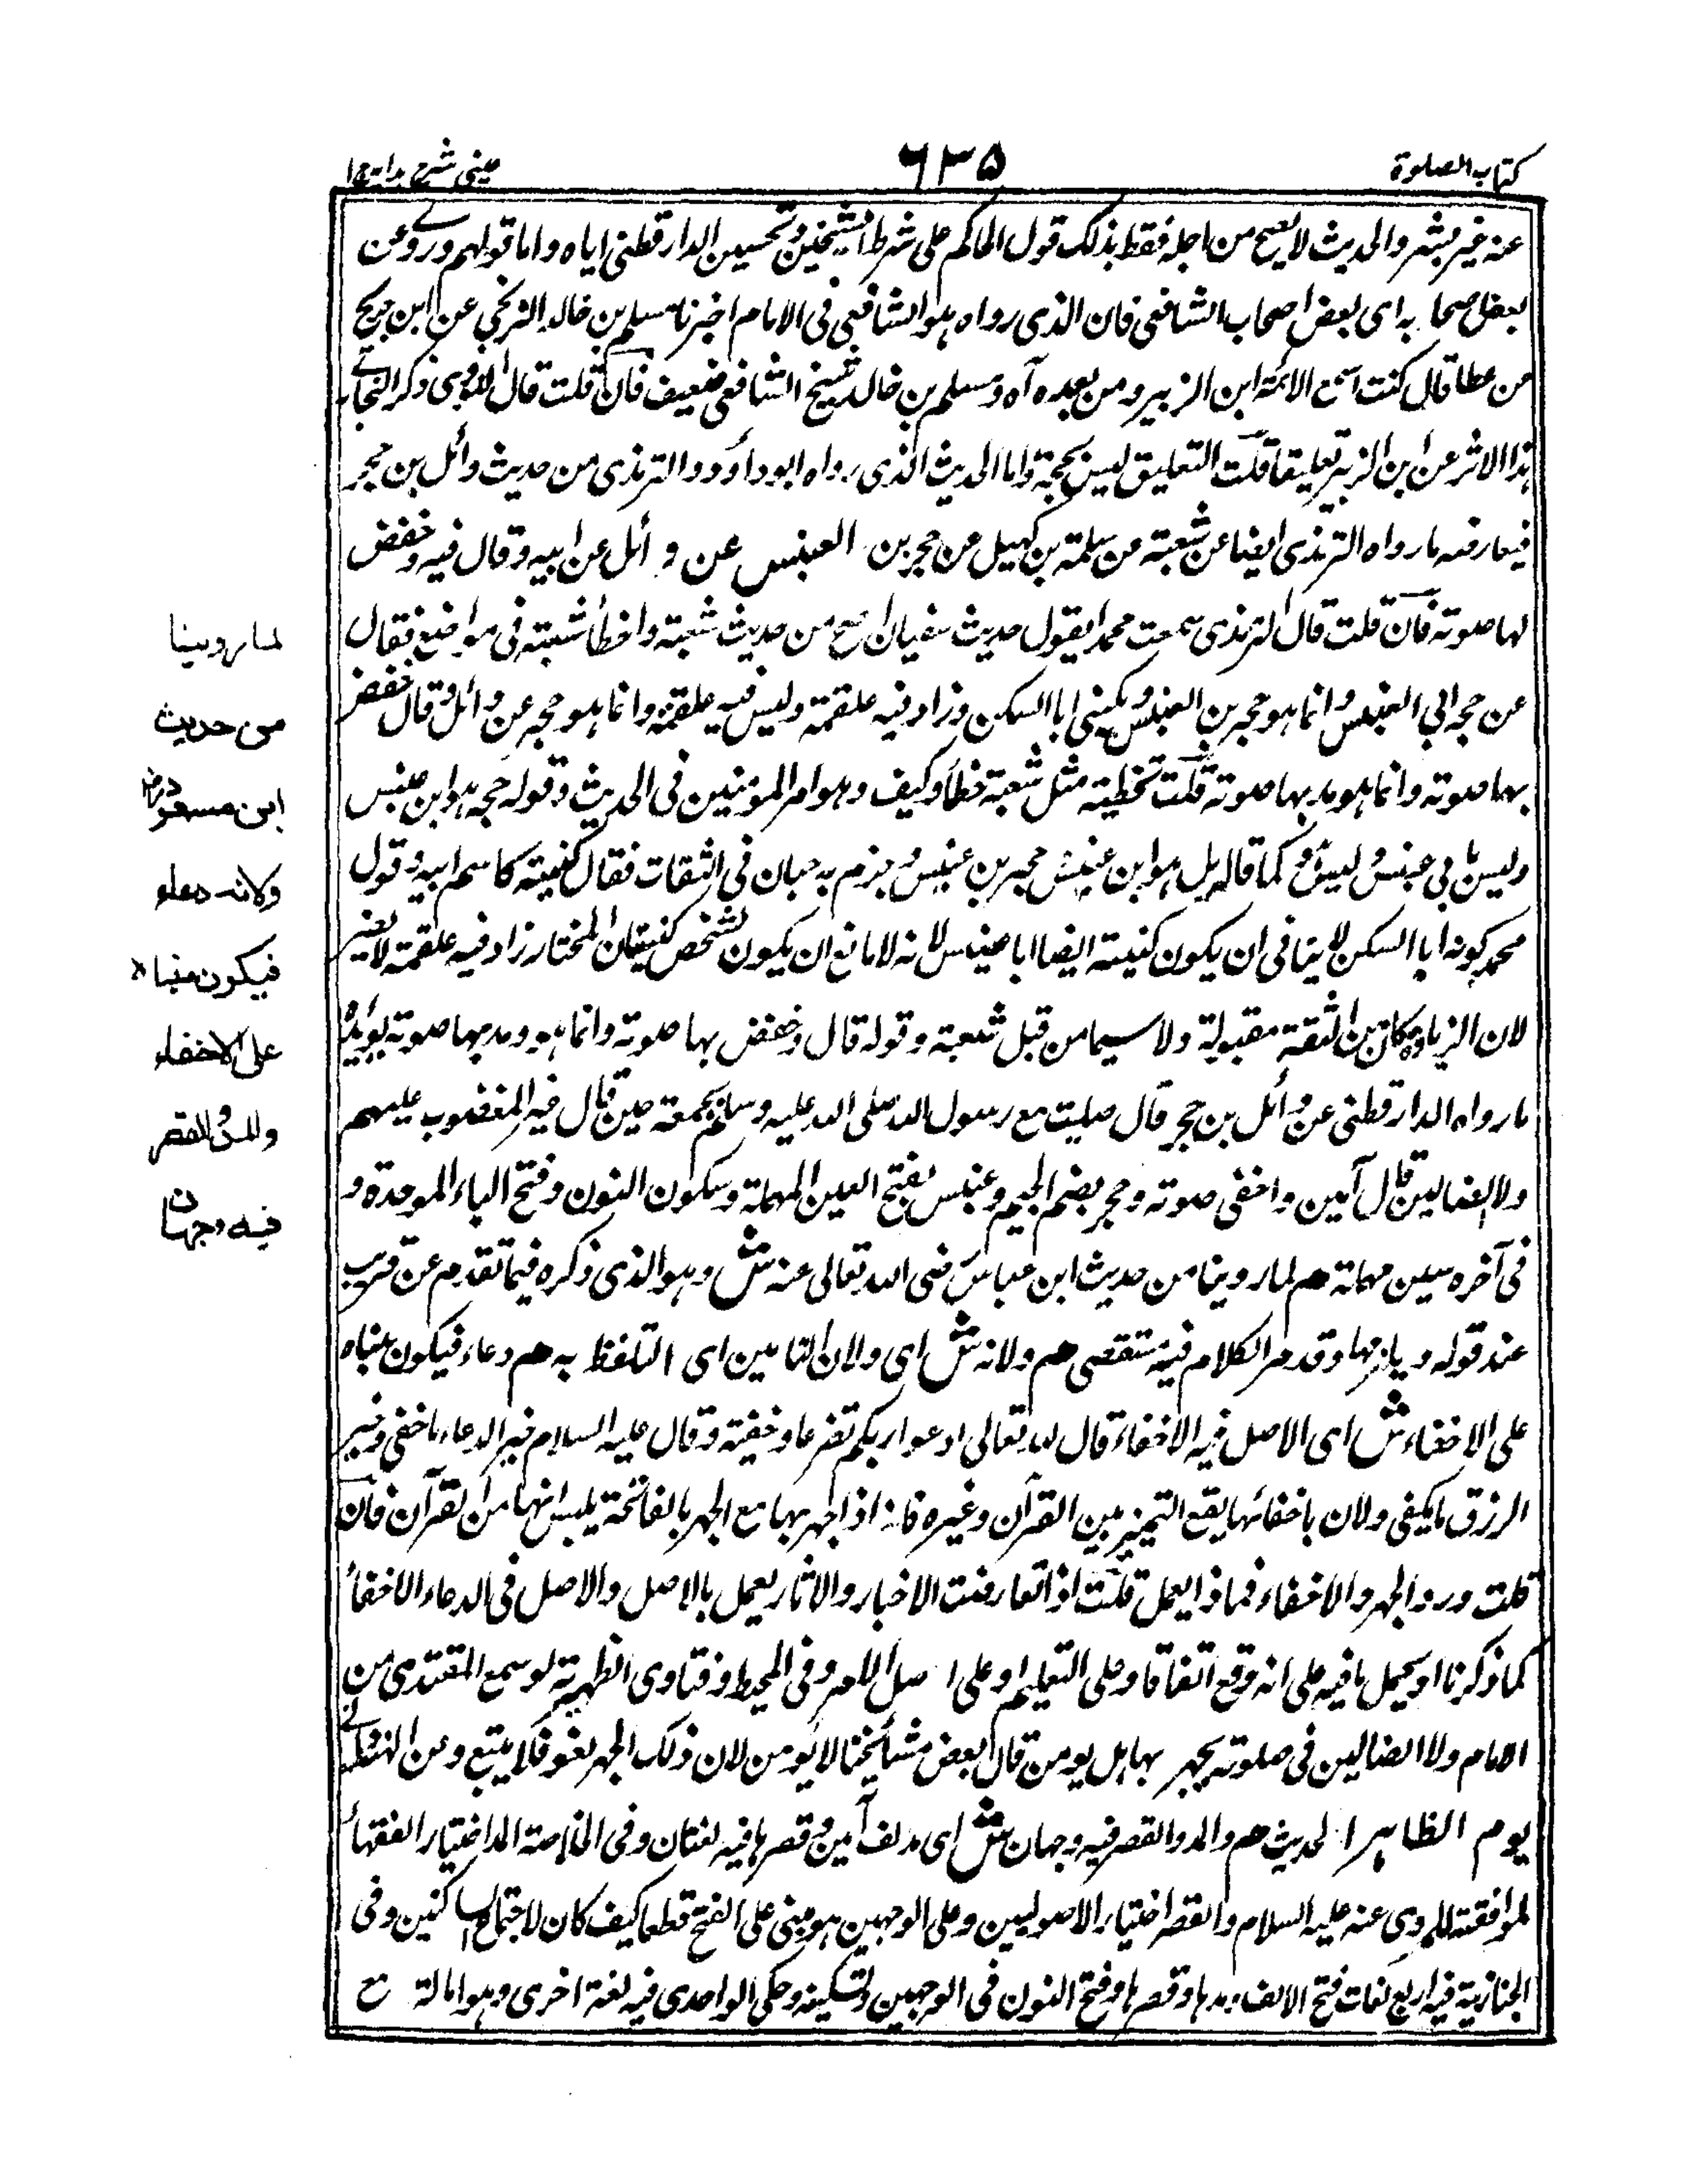 كتاب الصلوة
٦٣٥
عينى شرح هداية ج١
عنه غير مبشر والحديث لا يصح من اجله فقط بذلك قول الحاكم على شرط الشيخين وتحسين الدارقطنى اياه واما قولهم وروى عن
بعض اصحابه اى بعض اصحاب الشافعى فان الذى رواه هو الشافعى فى الامام اخبرنا مسلم بن خالد الزنجى عن ابن جريج
عن عطا قال كنت اسمع الائمة ابن الزبير ومن بعده آه ومسلم بن خالد شيخ الشافعى ضعيف فان قلت قال النووى ذكر البخارى
هذا الاثر عن ابن الزبير تعليقا قلت التعليق ليس بحجة واما الحديث الذى رواه ابو داؤد والترمذى من حديث وائل بن حجر
فيعارضه ما رواه الترمذى ايضا عن شعبة عن سلمة بن كهيل عن حجر بن العنبس عن وائل عن ابيه وقال فيه وخفض
لها صوته فان قلت قال الترمذى سمعت محمدا يقول حديث سفيان اصح من حديث شعبة واخطأ شعبة فى مواضع فقال
عن حجر ابى العنبس وانما هو حجر بن العنبس ويكنى ابا السكن وزاد فيه علقمة وليس فيه علقمة وانما هو حجر عن وائل وقال خفض
بها صوته وانما هو مد بها صوته قلت تخطية مثل شعبة خطأ وكيف وهو امير المؤمنين فى الحديث وقوله حجر هو ابن عنبس
وليس بابى عنبس وليس كما قاله بل هو ابن عنبس حجر بن عنبس وجزم به حبان فى الثقات فقال كنيته كاسم ابيه وقول
محمد كونه ابا السكن لا ينافى ان يكون كنيته ايضا ابا عنبس لانه لا مانع ان يكون لشخص كنيتان المختار زاد فيه علقمة لا يضير
لان الزيادة كان من الثقة مقبولة ولا سيما من قبل شعبة وقوله قال وخفض بها صوته وانما هو ومد بها صوته يؤيده
ما رواه الدارقطنى عن وائل بن حجر قال صليت مع رسول الله صلى الله عليه وسلم بجمعة حين قال غير المغضوب عليهم
ولا الضالين قال آمين واخفى صوته وحجر بضم الجيم وعنبس بفتح العين المهملة وسكون النون وفتح الباء الموحدة و
فى آخره سين مهملة هم لما روينا من حديث ابن عباس رضى الله تعالى عنه ش وهو الذى ذكره فيما تقدم عن قريب
عند قوله وياتى بها وقد مر الكلام فيه مستقصى هم ولانه ش اى ولان التامين اى التلفظ به هم دعاء فيكون مبناه
على الاخفاء ش اى الاصل فيه الاخفاء قال الله تعالى ادعوا ربكم تضرعا وخفية وقال عليه السلام خير الدعاء ما خفى وخير
الرزق ما يكفى ولان باخفائها يقع التميز بين القرآن وغيره فانه اذا جهر بها مع الجهر بالفاتحة يلبس انها من القرآن فان
قلت ورد الجهر والاخفاء فماذا يعمل قلت اذا تعارضت الاخبار والاثار يعمل بالاصل والاصل فى الدعاء الاخفاء
كما ذكرنا او يحمل ما فيه على انه وقع اتفاقا وعلى التعليم او على اصل الامر وفى المحيط وفتاوى الظهيرية لو سمع المقتدى من
الامام ولا الضالين فى صلوته يجهر بها هل يومن قال بعض مشائخنا لا يؤمن لان ذلك الجهر لغو فلا يتبع وعن الهندوانى
يوم الظاهر الحديث هم والمد والقصر فيه وجهان ش اى مد الف آمين وقصرها فيه لغتان وفى الخلاصة المد اختيار الفقهاء
لموافقته للمروى عنه عليه السلام والقصر اختيار الاصوليين وعلى الوجهين هو مبنى على الفتح قطعا كيف كان لاجتماع الساكنين وفى
الجنازية فيه اربع لغات فتح الالف ومدها وقصرها وفتح النون فى الوجهين وتسكينه وحكى الواحدى فيه لغة اخرى وهو امالة ع
لما روينا
من حديث
ابن مسعود رض
ولانه دعاء
فيكون مبناه
على الاخفاء
والمد والقصر
فيه وجهان